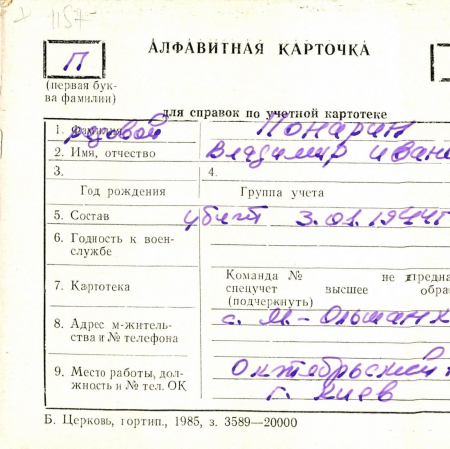 1157
АЛФАВИТНАЯ КАРТОЧКА
П
(первая бук-
ва фамилии)
для справок по учетной картотеке
1. Фамилия рядовой Понарин
2. Имя, отчество Владимир Иван
3. 4.
Год рождения Группа учета
5. Состав убит 3.01.1944г
6. Годность к воен-
службе
Команда № не предна
7. Картотека спецучет высшее обра
(подчеркнуть)
8. Адрес м-житель-
ства и № телефона с. М.-Ольшанка
9. Место работы, дол-
жность и № тел. ОК Октябрьский
г. Киев
Б. Церковь, гортип., 1985, з. 3589—20000